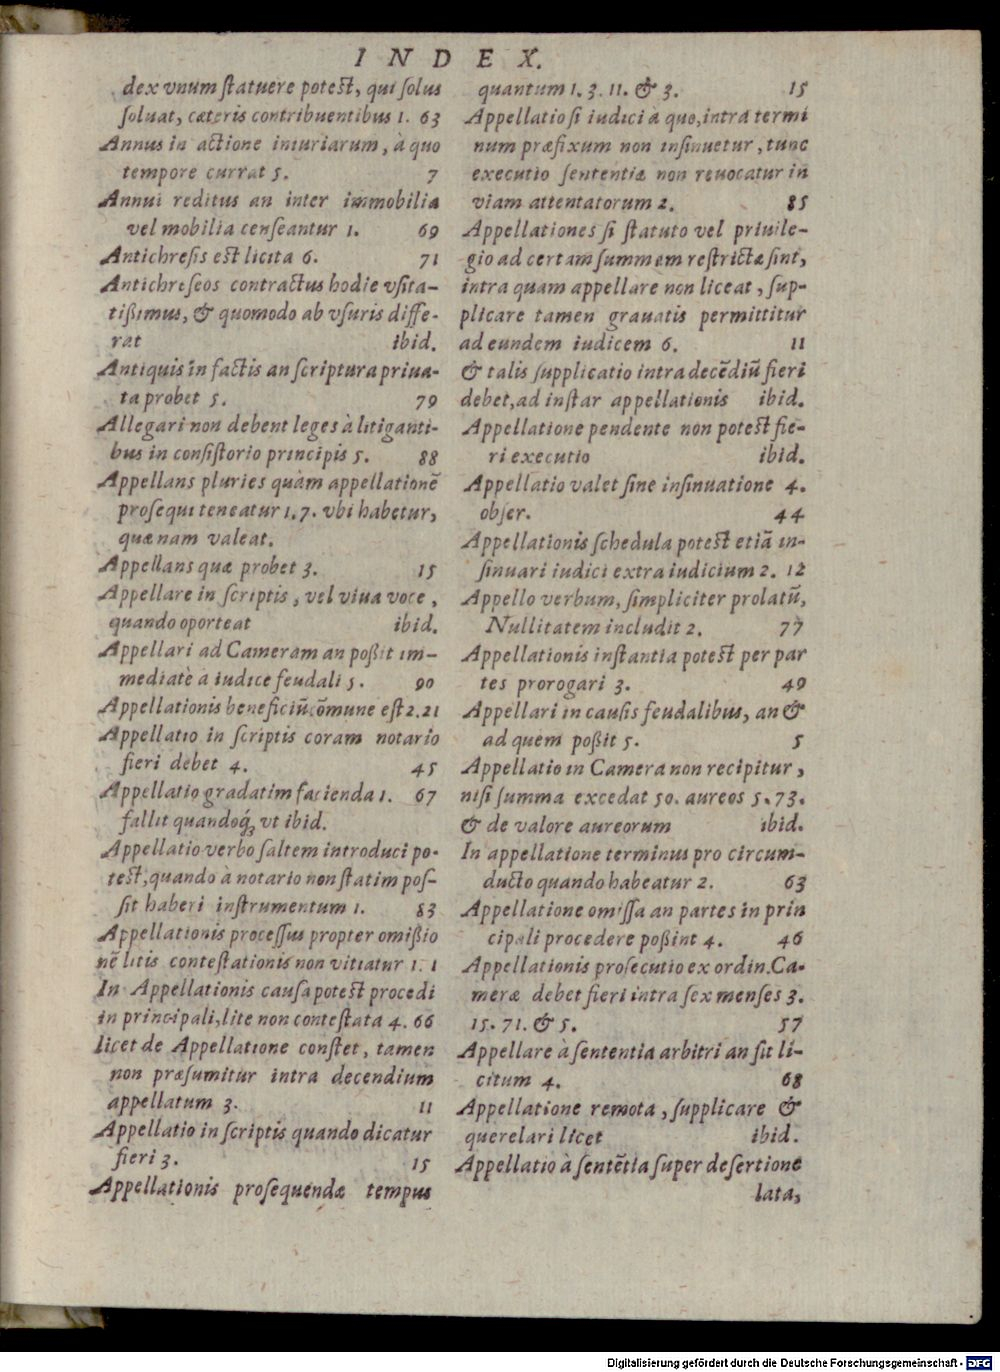 INDEX.
dex vnum ſtatuere poteſt, qui ſolus
ſoluat, cæteris contribuentibus 1. 63
Annus in actione iniuriarum, à quo
tempore currat 5. 7
Annui reditus an inter immobilia
vel mobilia cenſeantur 1. 69
Antichreſis eſt licita 6. 71
Antichreſeos contractus hodie vſita-
tißimus, & quomodo ab vſuris diffe-
rat ibid.
Antiquis in factis an ſcriptura priua-
ta probet 5. 79
Allegari non debent leges à litiganti-
bus in conſiſtorio principis 5. 88
Appellans pluries quàm appellationē
proſequi teneatur 1. 7. vbi habetur,
quænam valeat.
Appellans quæ probet 3. 15
Appellare in ſcriptis, vel viua voce,
quando oporteat ibid.
Appellari ad Cameram an poßit im-
mediatè à iudice feudali 5. 90
Appellationis beneficiū cōmune eſt 2. 21
Appellatio in ſcriptis coram notario
fieri debet 4. 45
Appellatio gradatim facienda 1. 67
fallit quandoq́ꝫ vt ibid.
Appellatio verbo ſaltem introduci po-
teſt, quando à notario non ſtatim poſ-
ſit haberi inſtrumentum 1. 83
Appellationis proceſſus propter omißio
nē litis conteſtationis non vitiatur 1. 1
In Appellationis cauſa poteſt procedi
in principali, lite non conteſtata 4. 66
licet de Appellatione conſtet, tamen
non præſumitur intra decendium
appellatum 3. 11
Appellatio in ſcriptis quando dicatur
fieri 3. 15
Appellationis proſequendæ tempus
quantum 1. 3. 11. & 3. 15
Appellatio ſi iudici à quo, intra termi
num præfixum non inſinuetur, tunc
executio ſententiæ non reuocatur in
viam attentatorum 2. 85
Appellationes ſi ſtatuto vel priuile-
gio ad certam ſummam reſtrictæ ſint,
intra quam appellare non liceat, ſup-
plicare tamen grauatis permittitur
ad eundem iudicem 6. 11
& talis ſupplicatio intra decēdiū fieri
debet, ad inſtar appellationis ibid.
Appellatione pendente non poteſt fie-
ri executio ibid.
Appellatio valet ſine inſinuatione 4.
obſer. 44
Appellationis ſchedula poteſt etiā in-
ſinuari iudici extra iudicium 2. 12
Appello verbum, ſimpliciter prolatū,
Nullitatem includit 2. 77
Appellationis inſtantia poteſt per par
tes prorogari 3. 49
Appellari in cauſis feudalibus, an &
ad quem poßit 5. 5
Appellatio in Camera non recipitur,
niſi ſumma excedat 50. aureos 5. 73.
& de valore aureorum ibid.
In appellatione terminus pro circum-
ducto quando habeatur 2. 63
Appellatione omiſſa an partes in prin
cipali procedere poßint 4. 46
Appellationis proſecutio ex ordin. Ca-
meræ debet fieri intra ſex menſes 3.
15. 71. & 5. 57
Appellare à ſententia arbitri an ſit li-
citum 4. 68
Appellatione remota, ſupplicare &
querelari licet ibid.
Appellatio à ſentētia ſuper deſertione
lata,
Digitalisierung gefördert durch die Deutsche Forschungsgemeinschaft - DFG